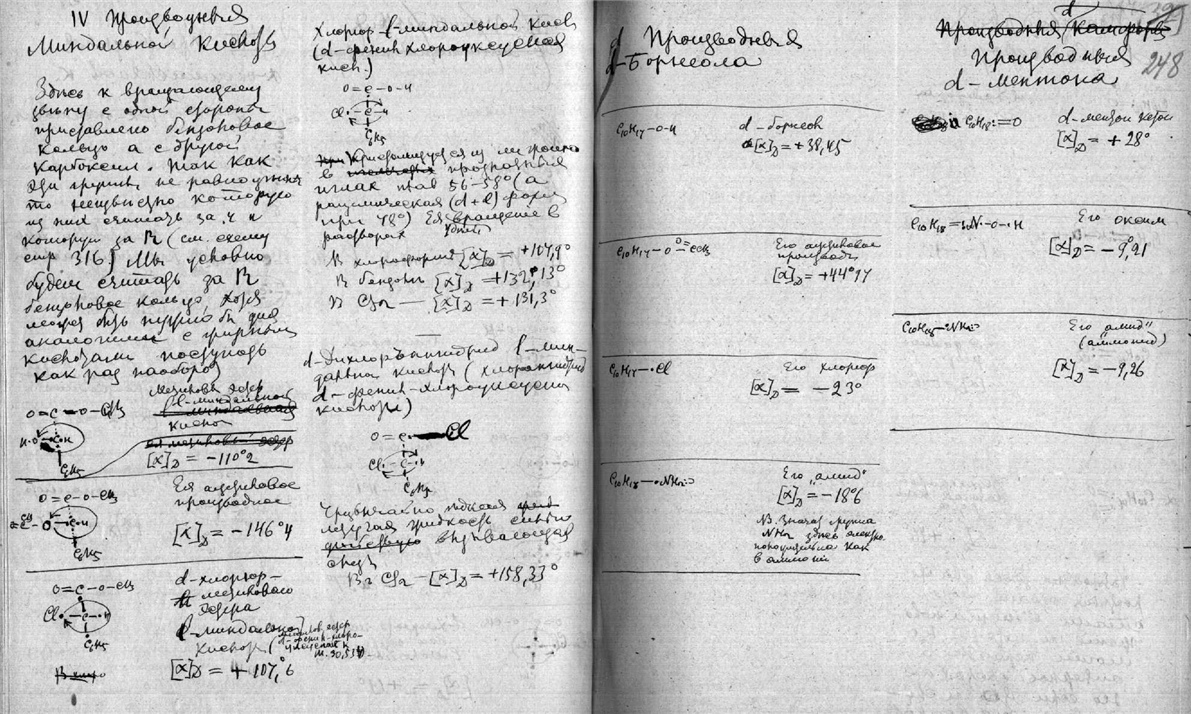 IV Производныя
Миндальной Кислоты
Здесь к вращающему
звену с одной стороны
приставлено бензоловое
кольцо а с другой
карбоксил. Так как
эти группы не равноценны
то неизвестно которую
из них считать за Ч и
которую за R (см. схему
стр 316) Мы условно
будем считать за R
бензоловое кольцо, хотя
может быть нужно бы для
аналогии с жирными
кислотами поступать
как раз наоборот)
O=C-O-CH3
H·O C·H
C6H5
Метиловый эфир
l-миндальной
кислоты
[α]D = -110°2
O=C-O-CH3
C·H
C6H5
Ея ацетиловое
производное
[α]D = -146°4
O=C-O-CH3
Cl· -C-·H
C6H5
d-хлорюр-
метиловаго
эфира
l-миндальной
кислоты
[α]D = +107,°6
Хлорюр l-миндальной кислоты
(d-фенил хлороуксусная
кисл.)
O=C-O-H
Cl· -C-H
C6H5
Кристаллизуется из лигроина
в прозрачных
иглах плав 56-58° (а
рацимическая (d+l) форма
при 78°) Ея вращение в
растворах
В хлороформе [α]D = +107,9°
В бензоле [α]D = +132,°13°
В CS2 — [α]D = +131,3°
d-Дихлорангидрид l-мин-
дальной кислоты (хлорангидрид
d-фенил-хлороуксусной
кислоты)
O=C-Cl
Cl· -C-·H
C6H5
Чрезвычайно едкая
летучая жидкость сильно
вызывающая
слезы
В CS2 — [α]D = +158,33°
d Производныя
d-Борнеола
C10H17-O-H
d-борнеол
[α]D = +38,45
C10H17-O-O=CCH3
Его ацетиловое
производн
[α]D = +44°97
C10H17-·Cl
Его хлорюр
[α]D = -23°
C10H18-·NH2=
Его „амид"
[α]D = -18°6
NB. Значит группа
NH2 здесь электро-
положительна как
в аммонии
d
Производныя Камфоры
Производныя
d-ментона
248
C10H18:=O
d-ментон кетон
[α]D = +28°
C10H18=:N-O-·H
Его оксим
[α]D = -9,°21
Его „амид"
(аммоний)
[α]D = -9,26